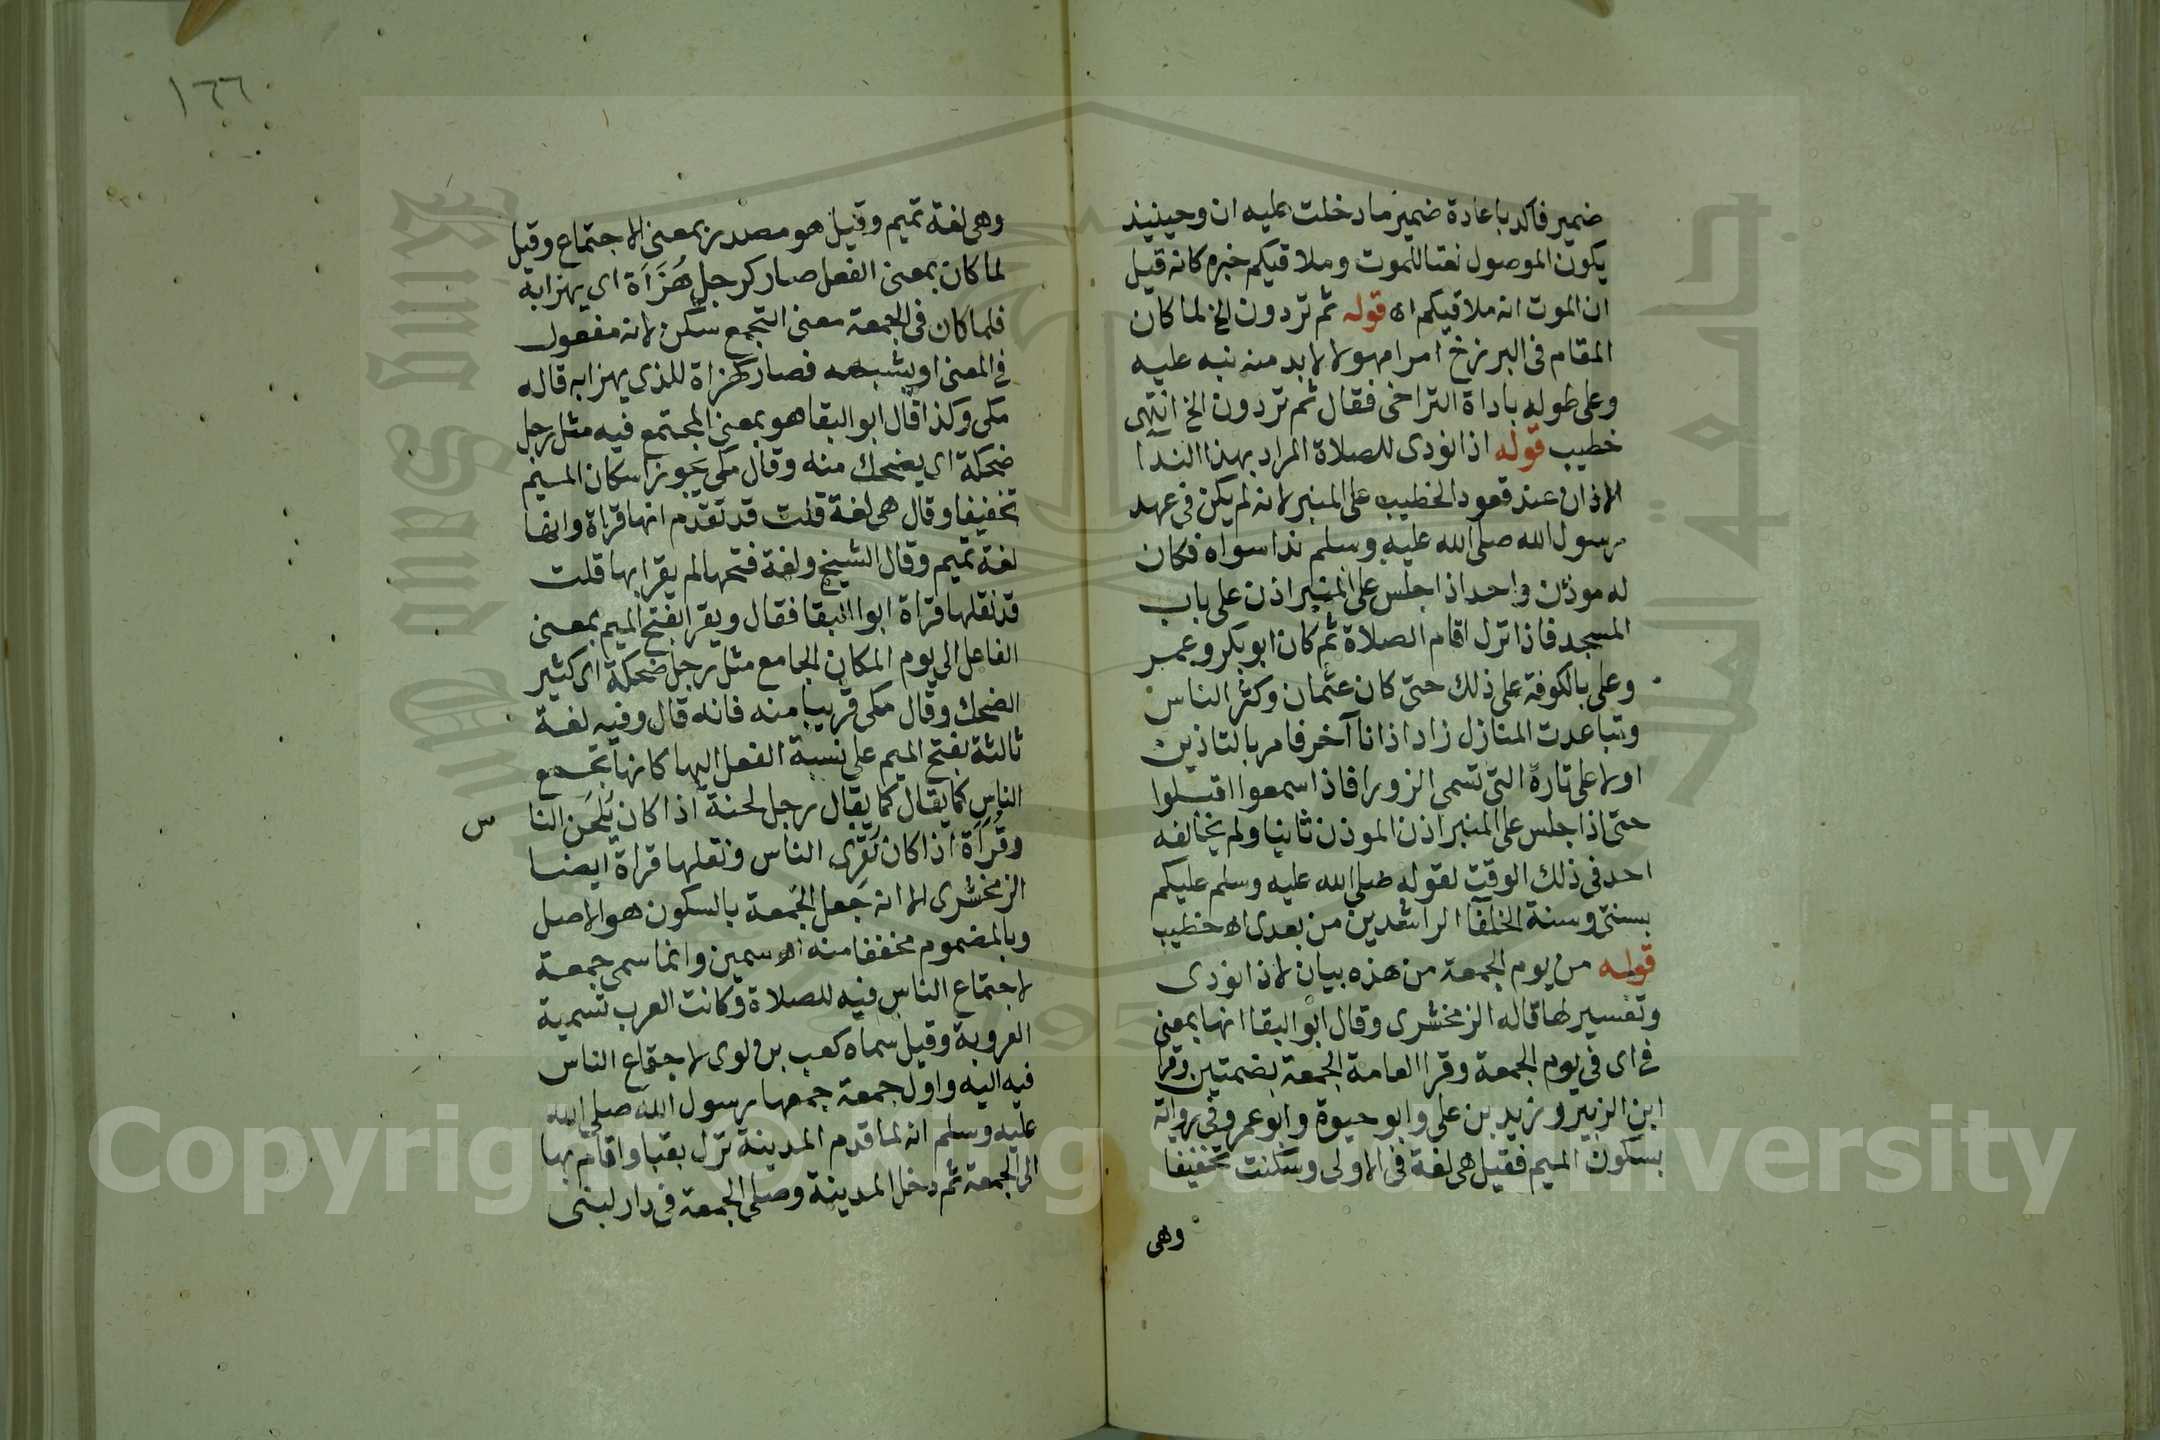 ضمير فاكد باعادة ضمير ما دخلت عليه ان وحينيذ
يكون الموصول نعتا للموت وملاقيكم خبره كانه قيل
ان الموت انه ملاقيكم اه قوله ثم تردون الخ لما كان
المقام فى البرزخ امرا مهولا لا بد منه نبه عليه
وعلى طوله باداة التراخى فقال ثم تردون الخ انتهى
خطيب قوله اذا نودى للصلاة المراد بهذا الندا
الاذان عند قعود الخطيب على المنبر لانه لم يكن فى عهد
رسول الله صلى الله عليه وسلم ندا سواه فكان
له موذن واحد اذا جلس على المنبر اذن على باب
المسجد فاذا نزل اقام الصلاة ثم كان ابو بكر وعمر
وعلى بالكوفة على ذلك حتى كان عثمان وكثر الناس
وتباعدت المنازل زاد اذانا آخر فامر بالتاذين
اولا على تارة التى تسمى الزورا فاذا سمعوا اقبلوا
حتى اذا جلس على المنبر اذن الموذن ثانيا ولم يخالفه
احد فى ذلك الوقت لقوله صلى الله عليه وسلم عليكم
بسنتى وسنة الخلفآ الراشدين من بعدى اه خطيب
قوله من يوم الجمعة من هذه بيان لاذا نودى
وتفسير لها قاله الزمخشرى وقال ابو البقا انها بمعنى
فى اى فى يوم الجمعة وقرا العامة الجمعة بضمتين وقرا
ابن الزبير وزيد بن على وابو حيوة وابو عمرو فى رواية
بسكون الميم فقيل هى لغة فى الاولى وسكنت تخفيفا
وهى
١٦٦
وهى لغة تميم وقيل هو مصدر بمعنى الاجتماع وقيل
لما كان بمعنى الفعل صار كرجل هُزَاَة اى يهزا به
فلما كان فى الجمعة معنى التجمع سكن لانه مفعول
فى المعنى او يشبهه فصار كهزاة للذى يهزا به قاله
مكى وكذا قال ابو البقا هو بمعنى المجتمع فيه مثل رجل
ضحكة اى يضحك منه وقال مكى يجوز اسكان الميم
تخفيفا وقال هى لغة قلت قد تقدم انها قراة وانها
لغة تميم وقال الشيخ ولغة فتحها لم يقرا بها قلت
قد نقلها قراة ابوا البقا فقال ويقرا بفتح الميم بمعنى
الفاعل الى يوم المكان الجامع مثل رجل ضحكة اى كثير
الضحك وقال مكى قريبا منه فانه قال وفيه لغة
ثالثة بفتح الميم على نسبة الفعل اليها كانها تجمع
الناس كما يقال كما يقال رجل لحنة اذا كان يَلحَن النا
س
وقُرَأَة اذا كان يُقرى الناس ونقلها قراة ايضا
الزمخشرى الا انه جعل الجمعة بالسكون هو الاصل
وبالمضموم مخففا منه اه سمين وانما سمى جمعة
لاجتماع الناس فيه للصلاة وكانت العرب تسميه
العروبة وقيل سماه كعب بن لوى لاجتماع الناس
فيه اليه واول جمعة جمعها رسول الله صلى الله
عليه وسلم انه لما قدم المدينة نزل بقبا واقام بها
الى الجمعة ثم دخل المدينة وصلى الجمعة فى دار لبنى
جامعة الملك سعود
King Saud University
1957
Copyright © King Saud University